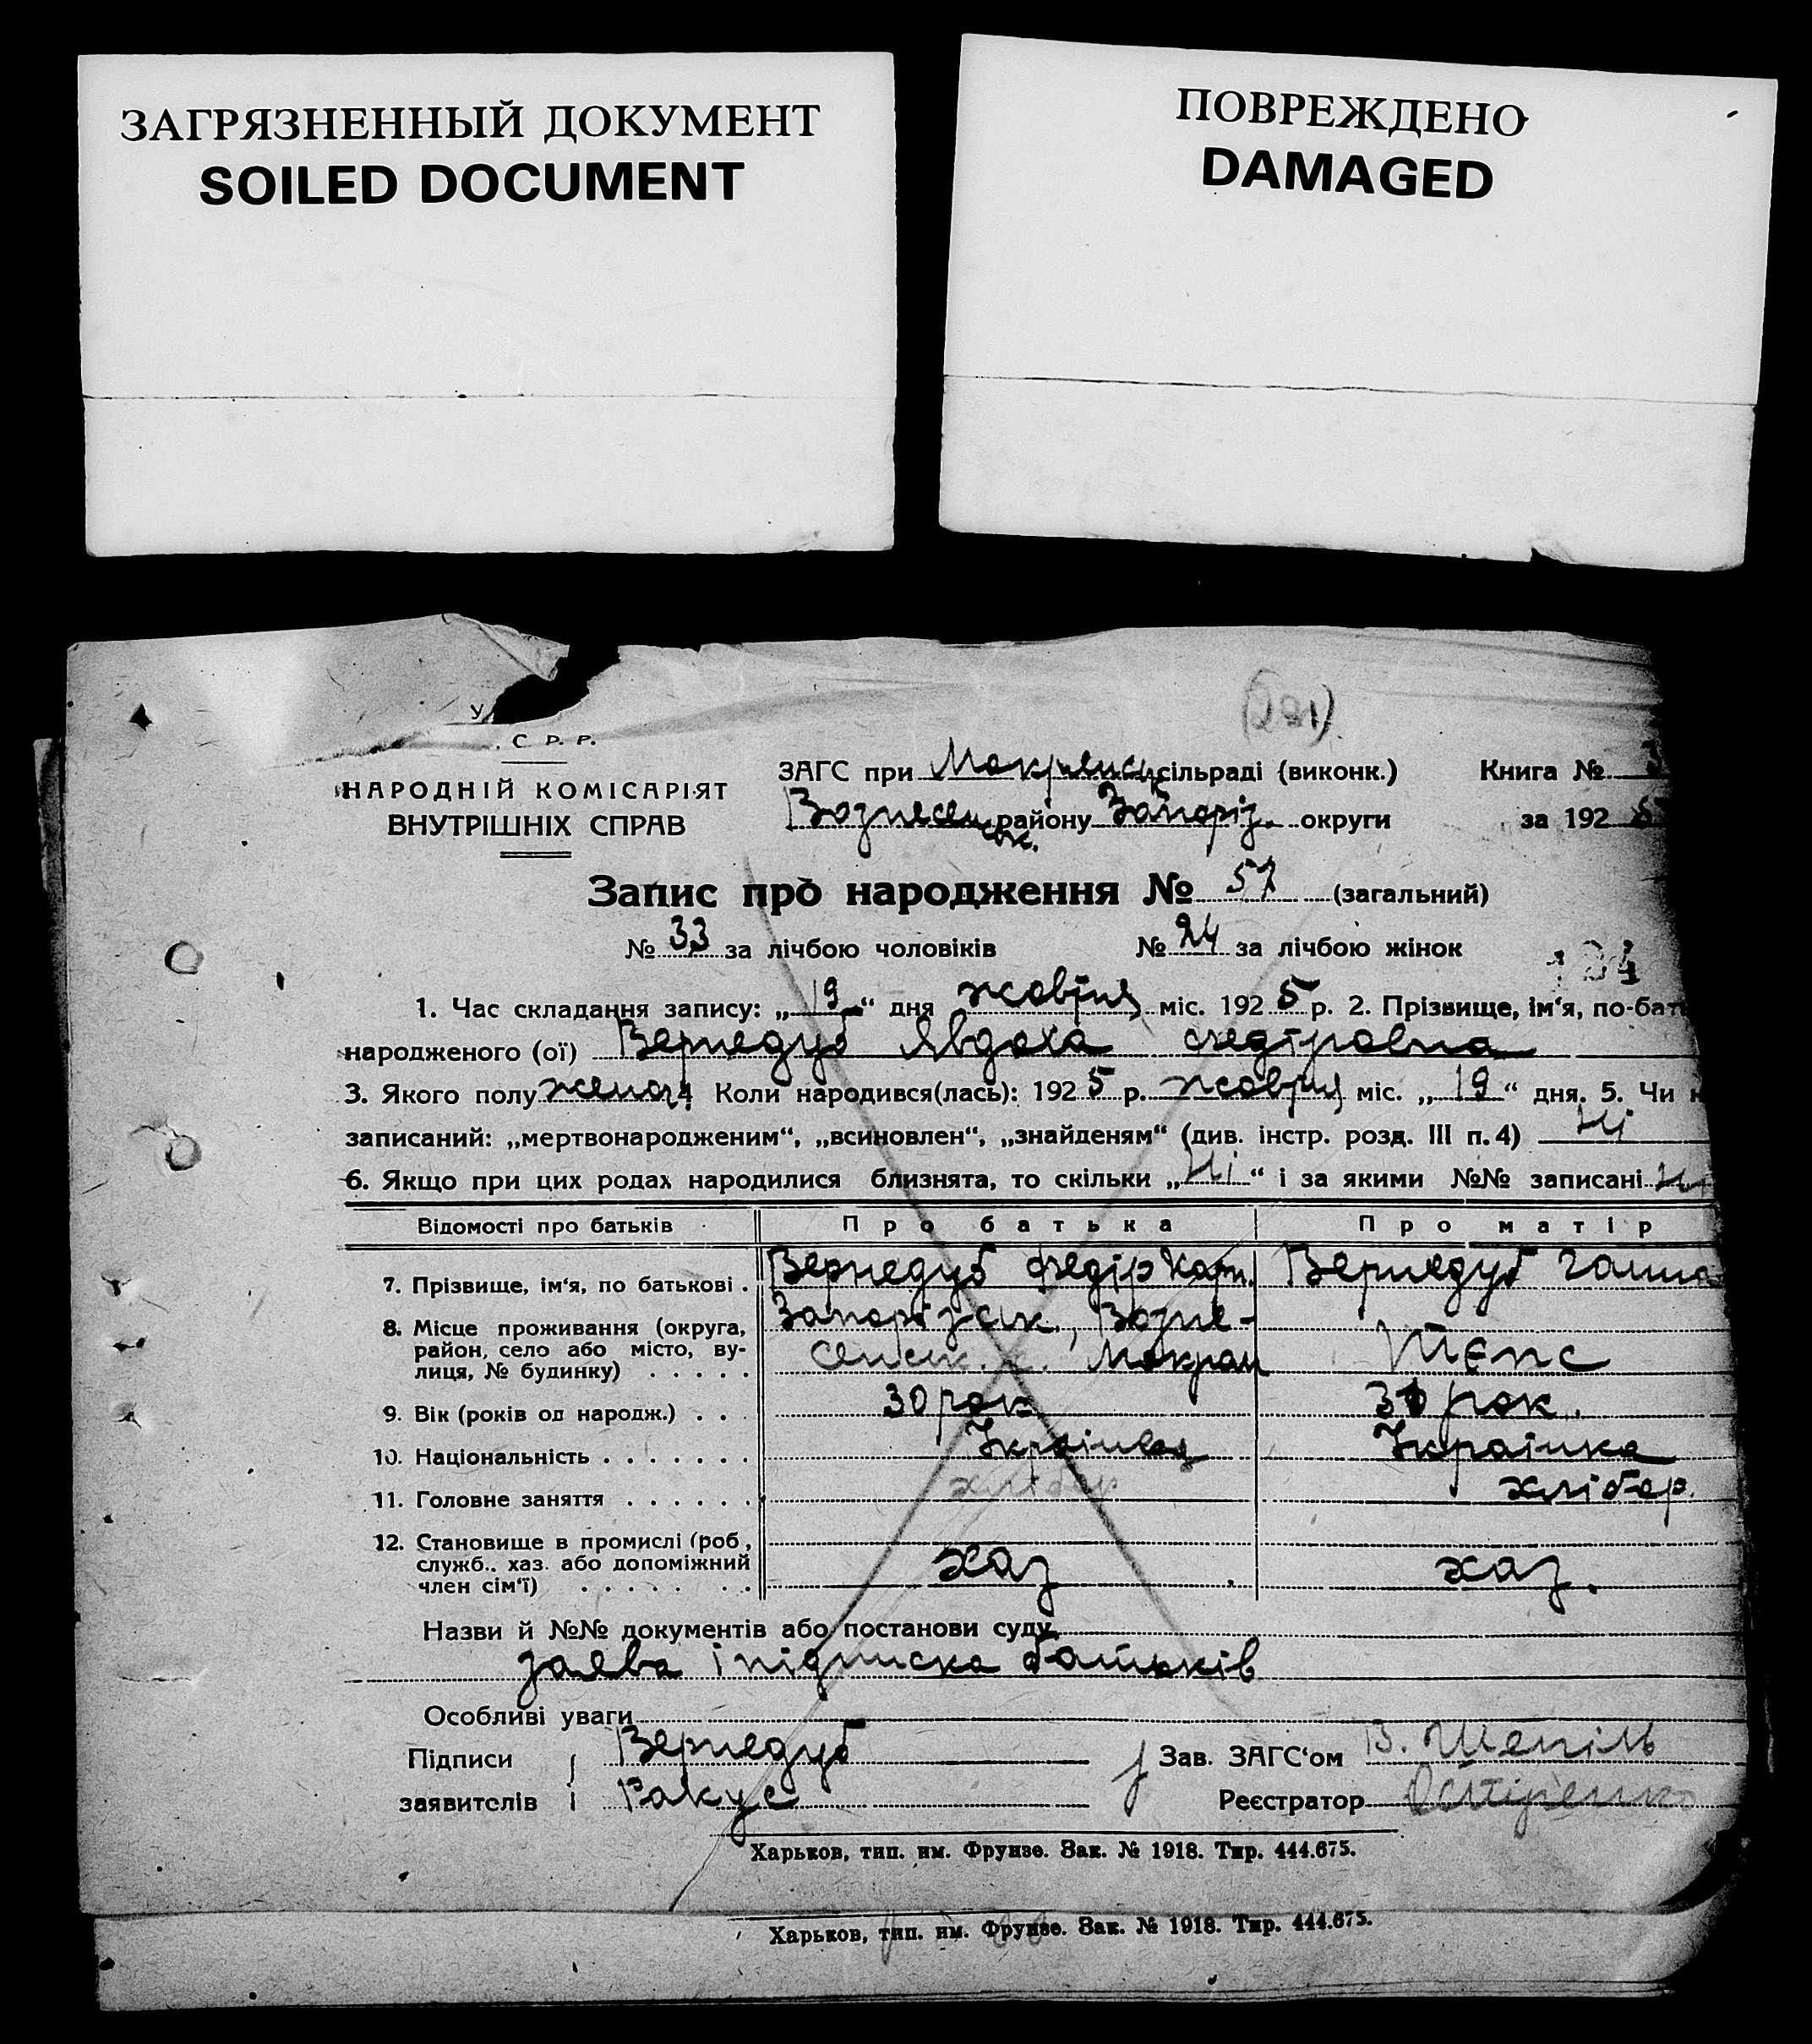 ЗАГРЯЗНЕННЫЙ ДОКУМЕНТ
SOILED DOCUMENT
ПОВРЕЖДЕНО
DAMAGED
У
С. Р. Р.
НАРОДНІЙ КОМІСАРІЯТ
ВНУТРІШНІХ СПРАВ
ЗАГС при Мокрянськ сільраді (виконк.) Книга №
Вознесенськ. району Запоріз. округи за 192 5
Запис про народження № 57 (загальний)
№ 33 за лічбою чоловіків № 24 за лічбою жінок
1. Час складання запису: „19“ дня жовтня міс. 192 5 р. 2. Прізвище, ім'я, по-бат
народженого (ої) Вернедуб Явдоха Федіровна
3. Якого полу женоч. 4 Коли народився(лась): 192 5 р. жовтня міс. „19“ дня. 5. Чи н
записаний: „мертвонародженим“, „всиновлен“, „знайденям“ (див. інстр. розд. III п. 4) Ні
6. Якщо при цих родах народилися близнята, то скільки „Ні“ і за якими №№ записані
Відомості про батьків Про батька Про матір
7. Прізвище, ім'я, по батькові . Вернедуб Федір Карп. Вернедуб Ганна
8. Місце проживання (округа, район, село або місто, вулиця, № будинку) . . . . . Запорізськ., Возне-
сенськ. Мокрян
9. Вік (років од народж.) . . . 30 рок 30 рок.
10. Національність . . . . . . . Українец Українка
11. Головне заняття . . . . . . хлібор хлібор.
12. Становище в промислі (роб., служб., хаз. або допоміжний член сім'ї) . . . . . . . хаз хаз.
Назви й №№ документів або постанови суду
заява і підписка батьків
Особливі уваги
Підписи Вернедуб Зав. ЗАГС'ом В. Шепіль
заявителів Ракус Реєстратор
Харьков, тип. им. Фрунзе. Зак. № 1918. Тир. 444.675.
Харьков, тип. им. Фрунзе. Зак. № 1918. Тир. 444.675.